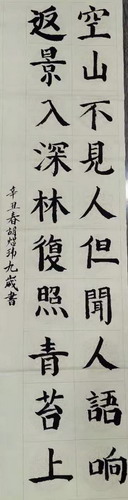 空山不見人但聞人語响
返景入深林復照青苔上
辛丑春胡煜玮九歲書